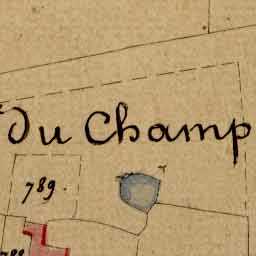 Du Champ
789.